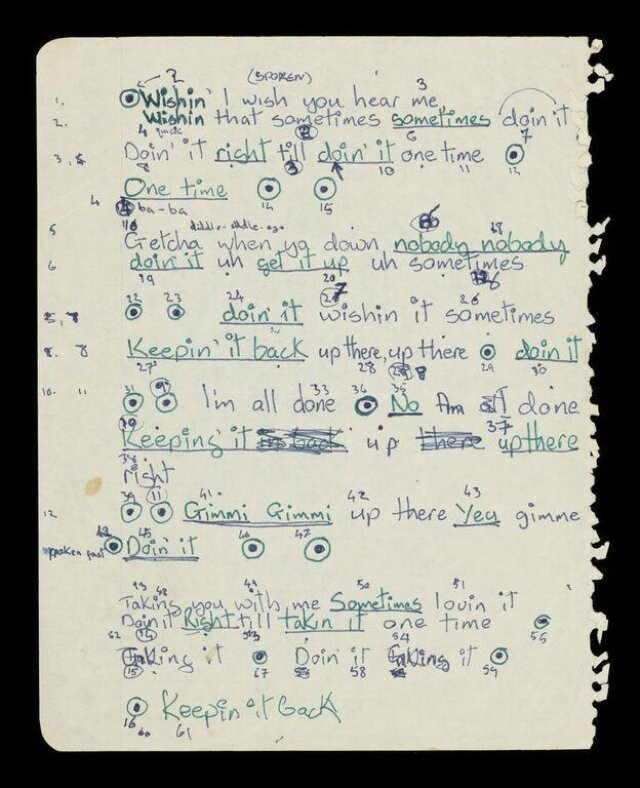 2 (SPOKEN) 3
1. Wishin' I wish you hear me,
2. Wishin that sometimes sometimes doin it
4 6 7
3, Doin' it right till doin' it one time
8 10 11 12
One time
4 14 15
ba-ba
5 16 18
Getcha when ya down nobody nobody
6 doin it uh get it up uh sometimes
19 20
22 23 24 7 26
doin it wishin it sometimes
8 Keepin' it back up there, up there doin it
27 28 29 30
31 33 34 35
10. 11 I'm all done No Am all done
37
Keeping it up there up there
38 right
39 11 41 42 43
12 Gimmi Gimmi up there Yea gimme
45
spoken Doin it
48 49 50 51
Taking you with me Sometimes lovin it
Doin it Right till takin it one time
52 53 54 55
Taking it Doin it Taking it
15 58 59
Keepin it Back
16 60 61